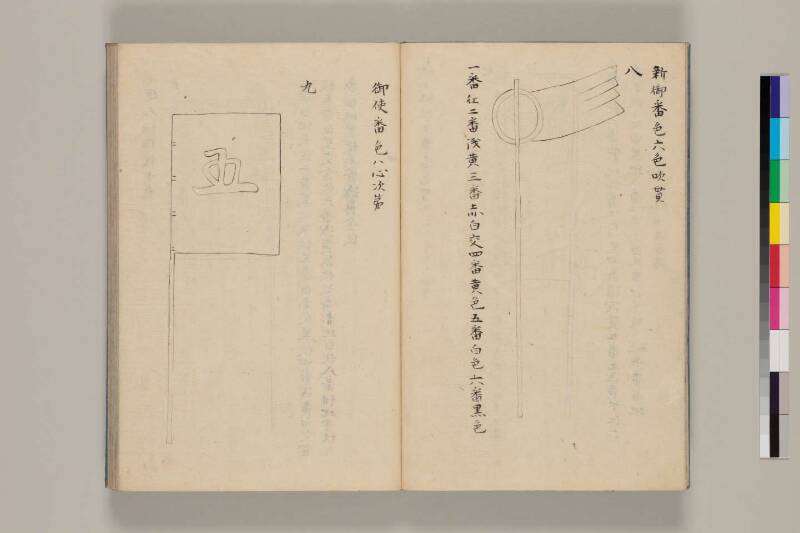 新御番色六色吹貫
八
一番紅二番浅黄三番赤白交四番黄色五番白色六番黒色
御使番色ハ心次第
九
五